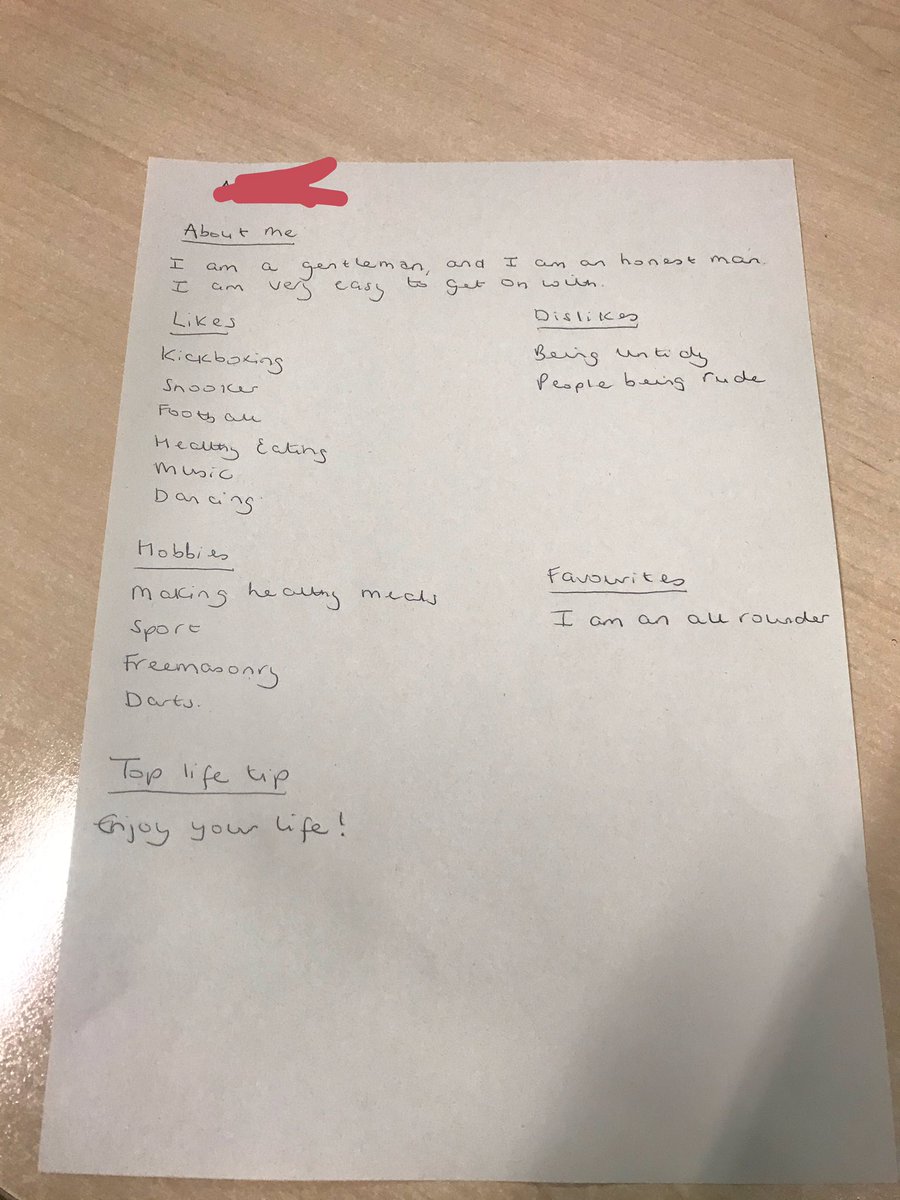 About me
I am a gentleman, and I am an honest man.
I am very easy to get on with.
Likes
Kickboxing
Snooker
Football
Healthy Eating
Music
Dancing
Dislikes
Being untidy
People being rude
Hobbies
Making healthy meals
Sport
Freemasonry
Darts.
Favourites
I am an all rounder
Top life tip
Enjoy your life!